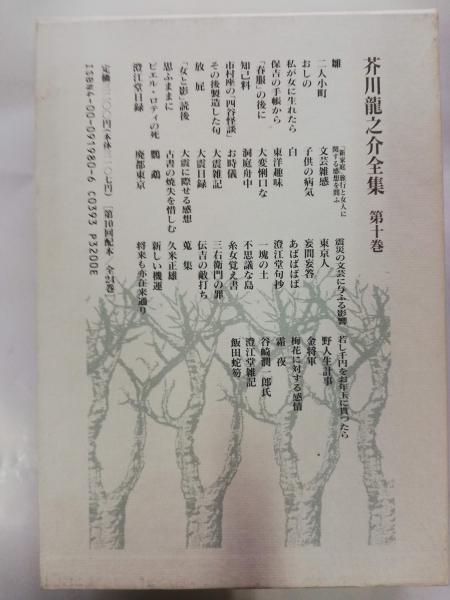 芥川龍之介全集 第十巻
雛
二人小町
おしの
私が女に生れたら
保吉の手帳から
「春服」の後に
知己料
市村座の「四谷怪談」
その後製造した句
放屁
「女と影」読後
思ふままに
ピエル・ロティの死
澄江堂日録
「新家庭」旅行と女人に
関する感想を問ふ
文芸雑感
子供の病気
白
東洋趣味
大変悧口な
洞庭舟中
お時儀
大震雑記
大震日録
大震に際せる感想
古書の焼失を惜しむ
鸚鵡
廃都東京
震災の文芸に与ふる影響
東京人
妄問妄答
あばばばば
澄江堂句抄
一塊の土
不思議な島
糸女覚え書
三右衛門の罪
伝吉の敵打ち
蒐集
久米正雄
新しい機運
将来も亦在来通り
若し千円をお年玉に貰つたら
野人生計事
金将軍
梅花に対する感情
霜夜
谷崎潤一郎氏
澄江堂雑記
飯田蛇笏
定価三二〇〇円(本体三一〇七円) [第10回配本 全24巻]
ISBN4-00-091980-6 C0393 P3200E